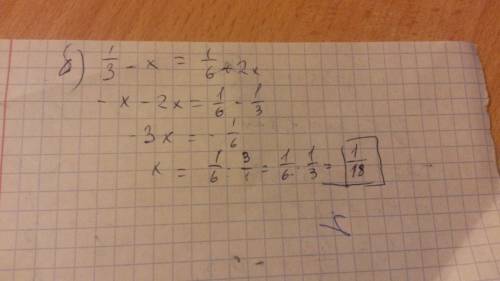 б) 1/3 - x = 1/6 + 2x
- x - 2x = 1/6 - 1/3
- 3x = - 1/6
x = 1/6 : 3/1 = 1/6 · 1/3 = 1/18